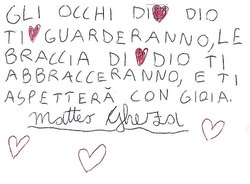 GLI OCCHI DI DIO
TI GUARDERANNO, LE
BRACCIA DI DIO TI
ABBRACCERANNO, E TI
ASPETTERÀ CON GIOIA.
Matteo